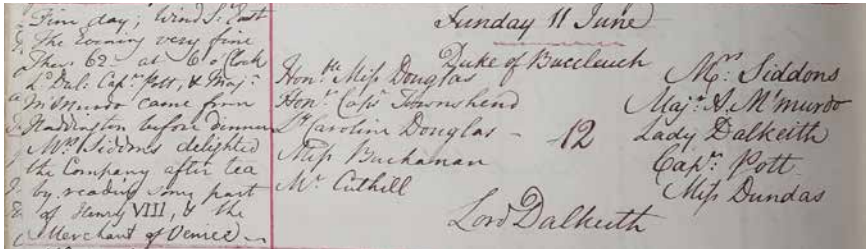 Fine day; Wind S. East
The Evening very fine
Ther. 62 at 6 o Clock
Ld. Dal: Capn. Pott, & Majr.
McMurdo came from
Haddington before dinner
Mrs. Siddons delighted
the Company after tea
by reading some part
of Henry VIII, & the
Merchant of Venice
Sunday 11 June
Duke of Buccleuch
Honble Miss Douglas
Honr. Capn Townshend
Ly Caroline Douglas –
Miss Buchanan
Mr. Cuthill
12
Mrs. Siddons
Majr. A. Mcmurdo
Lady Dalkeith
Capn. Pott
Miss Dundas
Lord Dalkeith